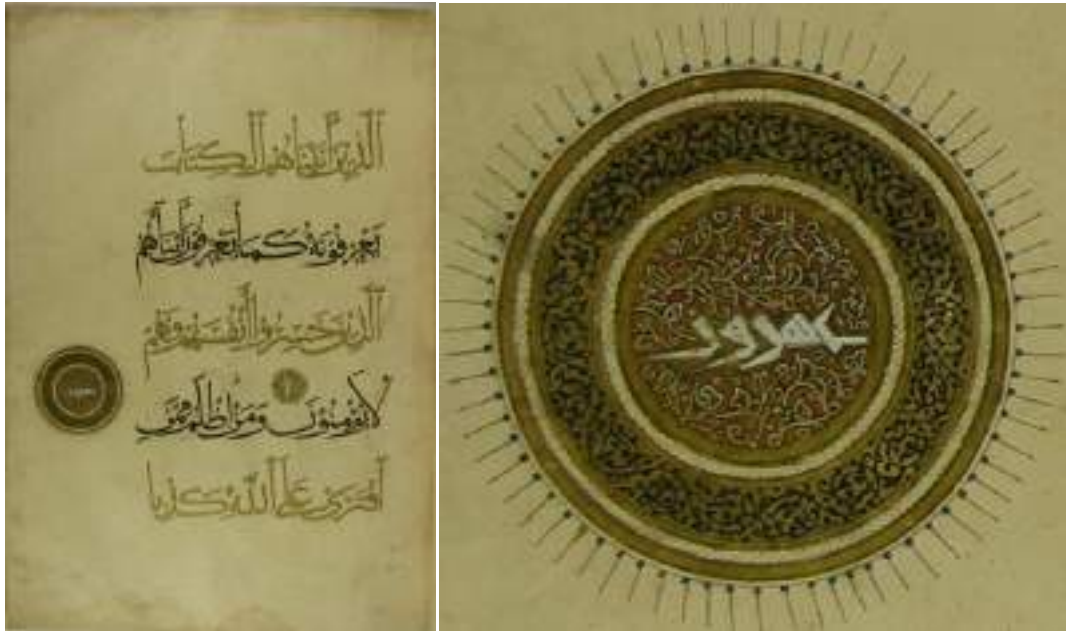 الَّذِينَ آتَيْنَاهُمُ الْكِتَابَ
يَعْرِفُونَهُ كَمَا يَعْرِفُونَ أَبْنَاءَهُمْ
الَّذِينَ خَسِرُوا أَنْفُسَهُمْ فَهُمْ
لَا يُؤْمِنُونَ وَمَنْ أَظْلَمُ مِمَّنِ
افْتَرَى عَلَى اللَّهِ كَذِبًا